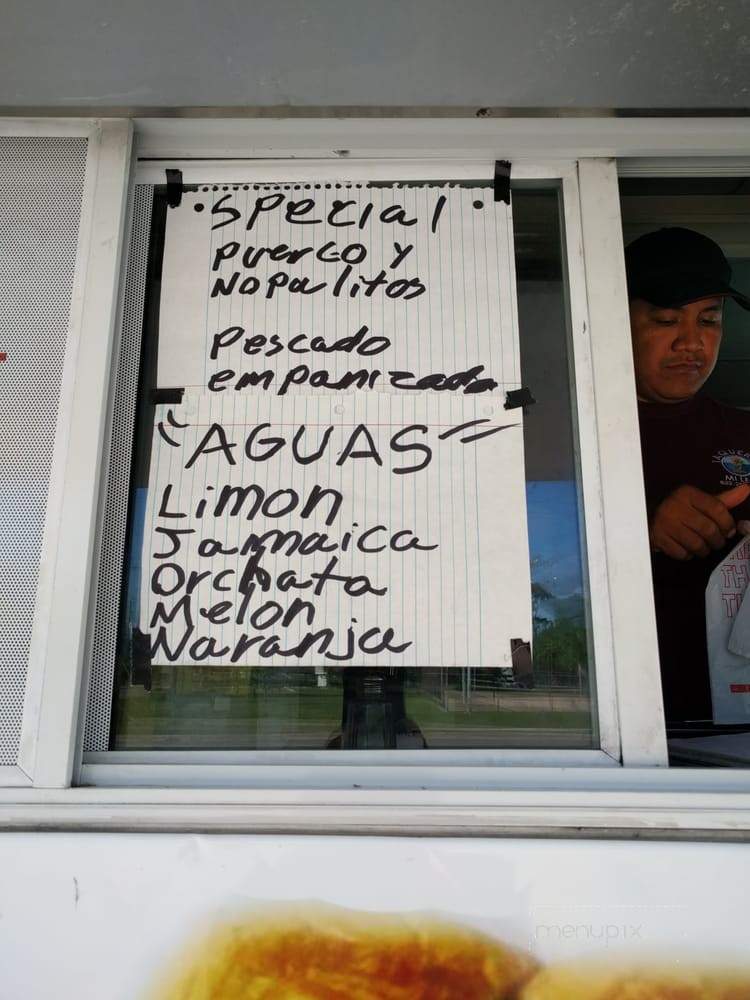 • Special •
Puerco y
Nopalitos
Pescado
empanizada
"AGUAS"
Limon
Jamaica
Orchata
Melon
Naranja
menupix